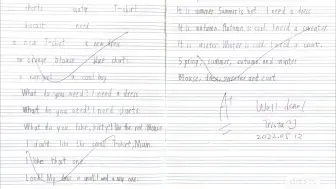 shorts skirt T-shirt
biscuit need
a new T-shirt a new dress
an orange blouse blue shorts
a cool boy
What do you need? I need a dress
What do you need? I need shorts
What do you like, Kitty? I like the red blouse
I don't like the T-shirt, Mum.
I like that one.
Look! My dress is small and my
It is summer. Summer is hot. I need a dress
It is autumn. Autumn is cool. I need a sweater
It is winter. Winter is cold. I need a coat.
Spring, summer, autumn and winter
Blouse, dress, sweater and coat.
A+
Well done!
Tricia
2022.05.12